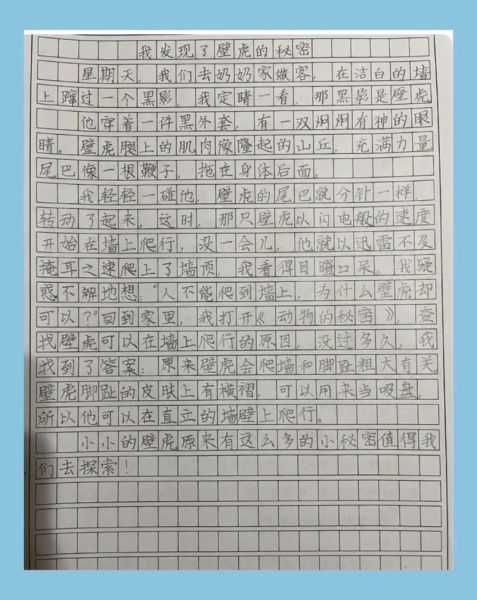 我发现了壁虎的秘密
星期天，我们去奶奶家做客，在洁白的墙
上蹿过一个黑影，我定睛一看，那黑影是壁虎
他穿着一件黑外套，有一双炯炯有神的眼
睛。壁虎腿上的肌肉像隆起的山丘，充满力量
尾巴像一根鞭子，拖在身体后面。
我轻轻一碰他，壁虎的尾巴就分针一样，
转动了起来。这时，那只壁虎以闪电般的速度
开始在墙上爬行，没一会儿，他就以迅雷不及
掩耳之速爬上了墙顶，我看得目瞪口呆。我疑
惑不解地想："人不能爬到墙上，为什么壁虎却
可以了"回到家里，我打开《动物的秘密》，查
找壁虎可以在墙上爬行的原因，没过多久，我
我到了答案：原来壁虎会爬墙和脚趾粗大有关。
壁虎脚趾的皮肤上有横褶，可以用来当吸盘，
所以他可以在直立的墙壁上爬行。
小小的壁虎原来有这么多的小秘密值得我
们去探索！